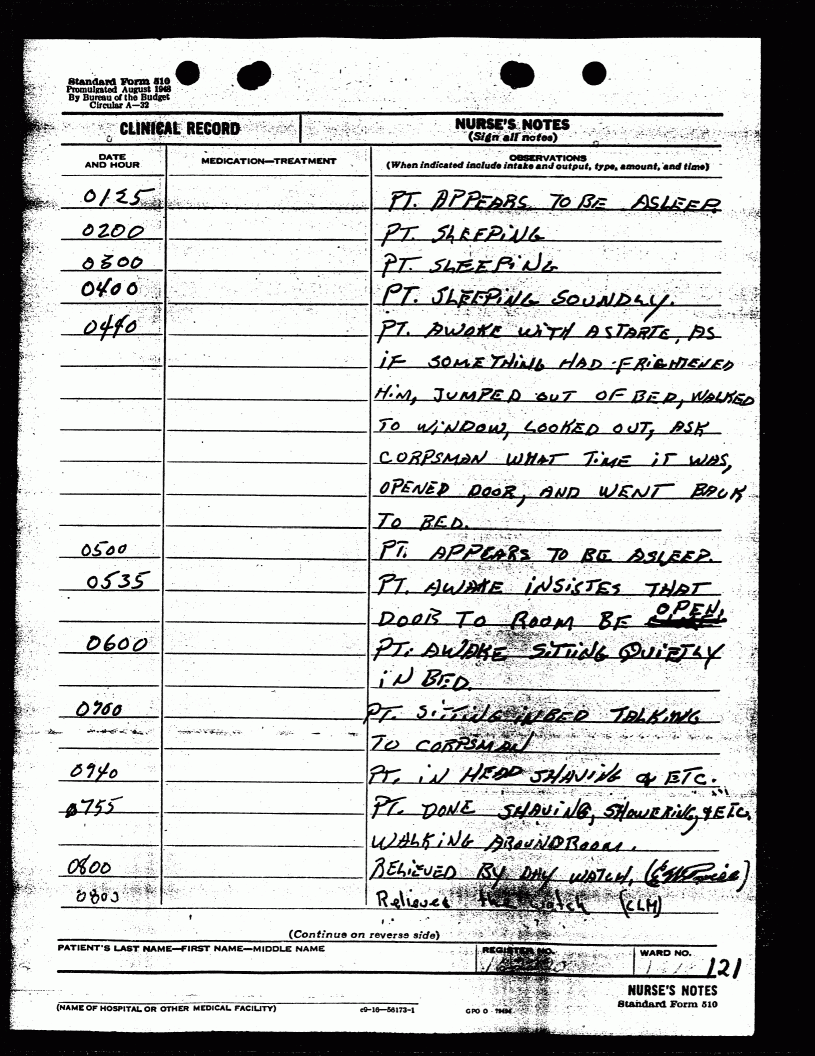 Standard Form 510
Promulgated August 1948
By Bureau of the Budget
Circular A—32
CLINICAL RECORD
NURSE'S NOTES
(Sign all notes)
DATE
AND HOUR
MEDICATION—TREATMENT
OBSERVATIONS
(When indicated include intake and output, type, amount, and time)
0125 PT. APPEARS TO BE ASLEEP
0200 PT. SLEEPING
0300 PT. SLEEPING
0400 PT. SLEEPING SOUNDLY.
0440 PT. AWOKE WITH A STARTE, AS
IF SOMETHING HAD FRIGHTENED
HIM, JUMPED OUT OF BED, WALKED
TO WINDOW, LOOKED OUT, ASK
CORPSMAN WHAT TIME IT WAS,
OPENED DOOR, AND WENT BACK
TO BED.
0500 PT. APPEARS TO BE ASLEEP.
0535 PT. AWAKE INSISTES THAT
DOOR TO ROOM BE OPEN.
0600 PT. AWAKE SITTING QUIETLY
IN BED.
0700 PT. SITTING IN BED TALKING
TO CORPSMAN
0740 PT. IN HEAD SHAVING & ETC.
0755 PT. DONE SHAVING, SHOWERING, & ETC,
WALKING AROUND ROOM.
0800 RELIEVED BY DAY WATCH,
0803 Relieved the watch (CLM)
(Continue on reverse side)
PATIENT'S LAST NAME—FIRST NAME—MIDDLE NAME
REGISTER NO.
WARD NO.
121
NURSE'S NOTES
Standard Form 510
(NAME OF HOSPITAL OR OTHER MEDICAL FACILITY)
c9-16—56173-1
GPO O